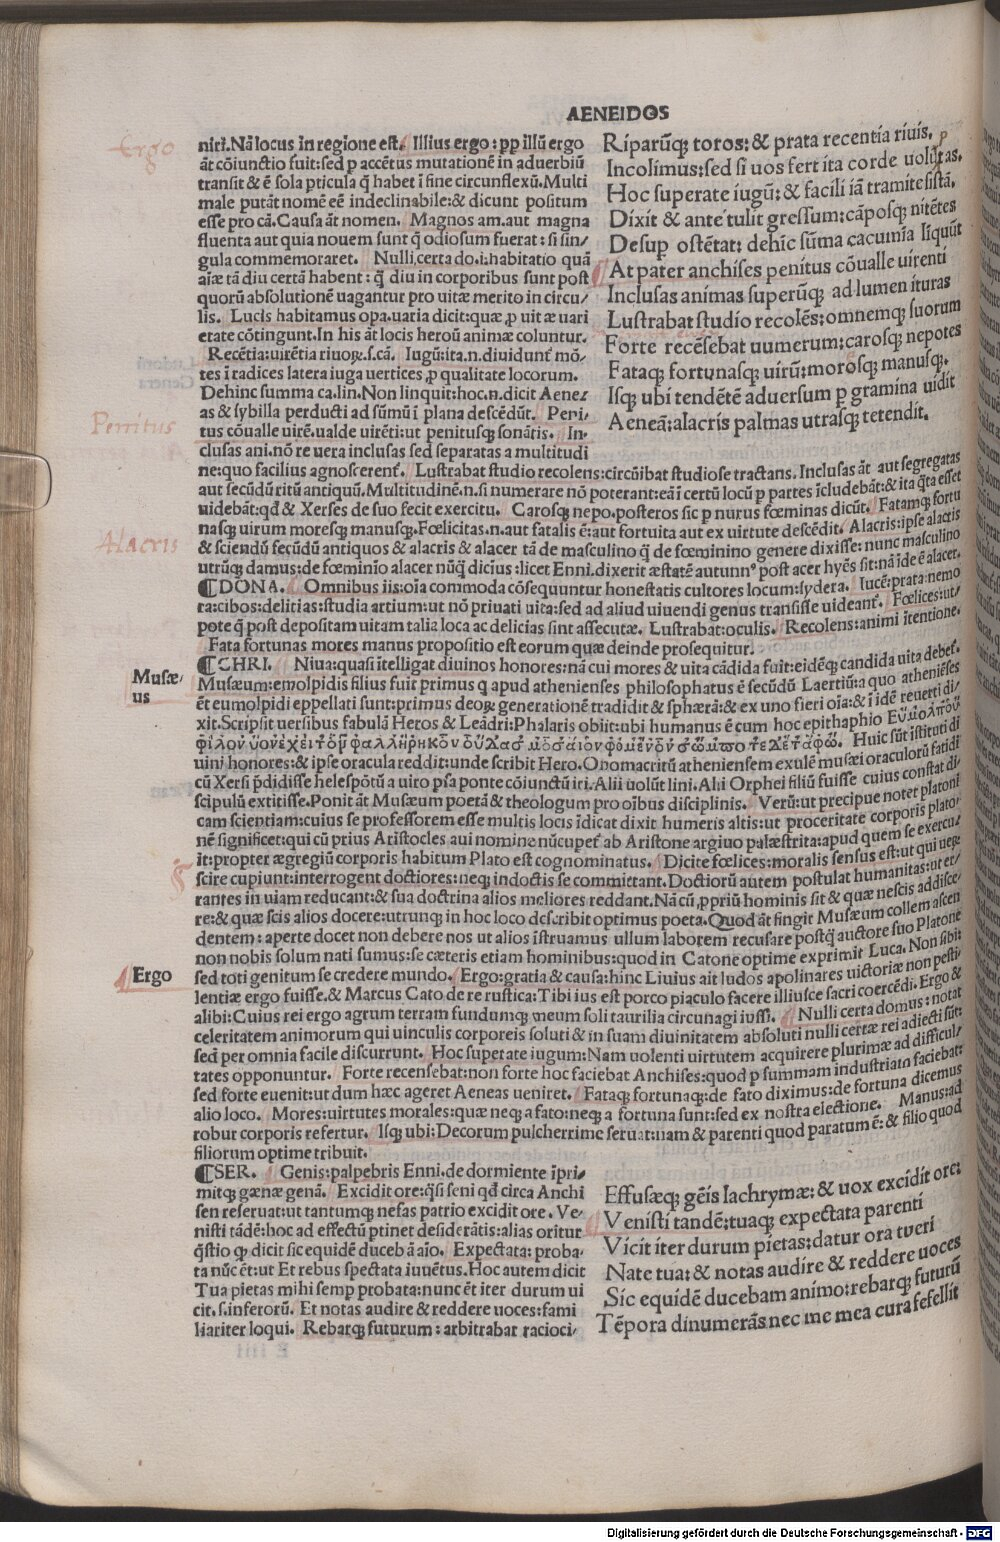 AENEIDOS
Ergo
niri. Nā locus in regione est. Illius ergo: pp illū ergo
āt cōiunctio fuit: sed p accētus mutationē in aduerbiū
transit & ē sola pticula q̄ habet ī fine circunflexū. Multi
male putāt nomē eē indeclinabile: & dicunt positum
esse pro cā. Causa āt nomen. Magnos am. aut magna
fluenta aut quia nouem sunt q̄ odiosum fuerat: si sin/
gula commemoraret. Nulli certa do. i. habitatio quā
aiæ tā diu certā habent: q̄ diu in corporibus sunt post
quorū absolutionē uagantur pro uitæ merito in circu/
lis. Lucis habitamus opa. uaria dicit: quæ ꝓ uitæ uari
etate cōtingunt. In his āt locis heroū animæ coluntur.
Recētia: uirētia riuoꝝ. s. cā. Iugū: ita. n. diuidunt̄ mō/
tes ī radices latera iuga uertices ꝓ qualitate locorum.
Dehinc summa ca. lin. Non linquit: hoc. n. dicit Aene/
as & sybilla perducti ad sūmū ī plana descēdūt. Peni/
Penitus
tus cōualle uirē. ualde uirēti: ut penitusq; sonātis. In/
clusas ani. nō re uera inclusas sed separatas a multitudi
Riparūq; toros: & prata recentia riuis.
Incolimus: sed si uos fert ita corde uolūtas.
Hoc superate iugū: & facili iā tramite sistā.
Dixit & ante tulit gressum: cāposq; nitētes
Desup ostētat: dehīc sūma cacumīa līquūt
At pater anchises penitus cōualle uirenti
Inclusas animas superūq; ad lumen ituras
Lustrabat studio recolēs: omnemq; suorum
Forte recēsebat uumerum: carosq; nepotes
Fataq; fortunasq; uirū: morosq; manusq;.
Isq; ubi tendētē aduersum p gramina uidit
Aeneā: alacris palmas utrasq; tetendit.
ne: quo facilius agnoscerent̄. Lustrabat studio recolens: circūibat studiose tractans. Inclusas āt aut segregatas
aut secūdū ritū antiquū. Multitudinē. n. si numerare nō poterant: eā ī certū locū p partes īcludebāt: & ita q̄ta esset
uidebāt: qd & Xerses de suo fecit exercitu. Carosq; nepo. posteros sic p nurus fœminas dicūt. Fatamq; fortu
nasq; uirum moresq; manusq;. Fœlicitas. n. aut fatalis ē: aut fortuita aut ex uirtute descēdit. Alacris: ipse alacris
Alacris
& sciendū secūdū antiquos & alacris & alacer tā de masculino q̄ de fœminino genere dixisse: nunc masculino
utrūq; damus: de fœminīo alacer nūq̄ dicius: licet Enni. dixerit æstatē autunn⁹ post acer hyēs sit: nā ide ē alacer.
¶DONA. Omnibus iis: oia commoda cōsequuntur honestatis cultores locum: sydera. Iucē: prata: nemo
ra: cibos: delitias: studia artium: ut nō priuati uita: sed ad aliud uiuendi genus transisse uideant̄. Fœlices: ut/
pote q̄ post depositam uitam talia loca ac delicias sint assecutæ. Lustrabat: oculis. Recolens: animi itentione.
Fata fortunas mores manus propositio est eorum quæ deinde prosequitur.
Musæ-
us
¶CHRI. Niua: quasi ītelligat diuinos honores: nā cui mores & uita cādida fuit: eidēq; candida uita debet.
Musæum: emolpidis filius fuit primus q apud athenienses philosophatus ē secūdū Laertiū: a quo athenieses
ēt eumolpidi eppellati sunt: primus deoꝝ generationē tradidit & sphærā: & ex uno fieri oia: & ī idē reuerti di/
xit. Scripsit uersibus fabulā Heros & Leādri: Phalaris obiit: ubi humanus ē cum hoc epithaphio
Huic sūt īstituti di
uini honores: & ipse oracula reddit: unde scribit Hero. Onomacritū atheniensem exulē musæi oraculorū fatidi
cū Xersi p̄didisse helespōtū a uiro psa ponte cōiunctū iri. Alii uolūt lini. Alii Orphei filiū fuisse cuius constat di/
scipulū extitisse. Ponit āt Musæum poetā & theologum pro oībus disciplinis. Verū: ut precipue notet platoni
cam scientiam: cuius se professorem esse multis locis īdicat dixit humeris altis: ut proceritate corporis plato/
nē significet: qui cū prius Aristocles aui nomine nūcupet̄ ab Aristone argiuo palæstrita: apud quem se exercu/
it: propter ægregiū corporis habitum Plato est cognominatus. Dicite fœlices: moralis sensus est: ut qui uege
scire cupiunt: interrogent doctiores: neq; indoctis se commictant. Doctiorū autem postulat humanitas: ut er/
rantes in uiam reducant: & sua doctrina alios meliores reddant. Nā cū ꝓpriū hominis sit & quæ nescis addisce/
re: & quæ scis alios docere: utrunq; in hoc loco describit optimus poeta. Quod āt fingit Musæum collem ascen
dentem: aperte docet non debere nos ut alios īstruamus ullum laborem recusare postq̄ auctore suo Platone
non nobis solum nati sumus: se cæteris etiam hominibus: quod in Catone optime exprimit Luca. Non sibi:
Ergo
sed toti genitum se credere mundo. Ergo: gratia & causa: hinc Liuius ait ludos apolinares uictoriæ non pesti/
lentiæ ergo fuisse. & Marcus Cato de re rustica: Tibi ius est porco piaculo facere illiusce sacri coercēdi. Ergo &
alibi: Cuius rei ergo agrum terram fundumq; meum soli taurilia circunagi iussi. Nulli certa domus: notat
celeritatem animorum qui uinculis corporeis soluti & in suam diuinitatem absoluti nulli certæ rei adiecti sūt:
sed per omnia facile discurrunt. Hoc superate iugum: Nam uolenti uirtutem acquirere plurimæ ad difficul/
tates opponuntur. Forte recensebat: non forte hoc faciebat Anchises: quod p summam industriam faciebat:
sed forte euenit: ut dum hæc ageret Aeneas ueniret. Fataq; fortunaq;: de fato diximus: de fortuna dicemus
alio loco. Mores: uirtutes morales: quæ neq; a fato: neq; a fortuna sunt: sed ex nostra electione. Manus: ad
robur corporis refertur. Isq; ubi: Decorum pulcherrime seruat: nam & parenti quod paratum ē: & filio quod
filiorum optime tribuit.
¶SER. Genis: palpebris Enni. de dormiente īpri/
mitq; gænæ genā. Excidit ore: q̄si seni qd circa Anchi
sen reseruat: ut tantumq; nefas patrio excidit ore. Ve/
nisti tādē: hoc ad effectū ptinet desiderātis: alias oritur
q̄stio ꝙ dicit sic equidē duceb ā aīo. Expectata: proba-
ta nūc ēt: ut Et rebus spectata iuuētus. Hoc autem dicit
Tua pietas mihi semp probata: nunc ēt iter durum ui
cit. s. inferorū. Et notas audire & reddere uoces: fami
liariter loqui. Rebarq; futurum: arbitrabar racioci/
Effusæq; gēis lachrymæ: & uox excidit ore:
Venisti tandē: tuaq; expectata parenti
Vicit iter durum pietas: datur ora tueri
Nate tua: & notas audire & reddere uoces
Sic equidē ducebam animo: rebarq; futurū
Tēpora dinumerās nec me mea cura fefellit
Digitalisierung gefördert durch die Deutsche Forschungsgemeinschaft - DFG